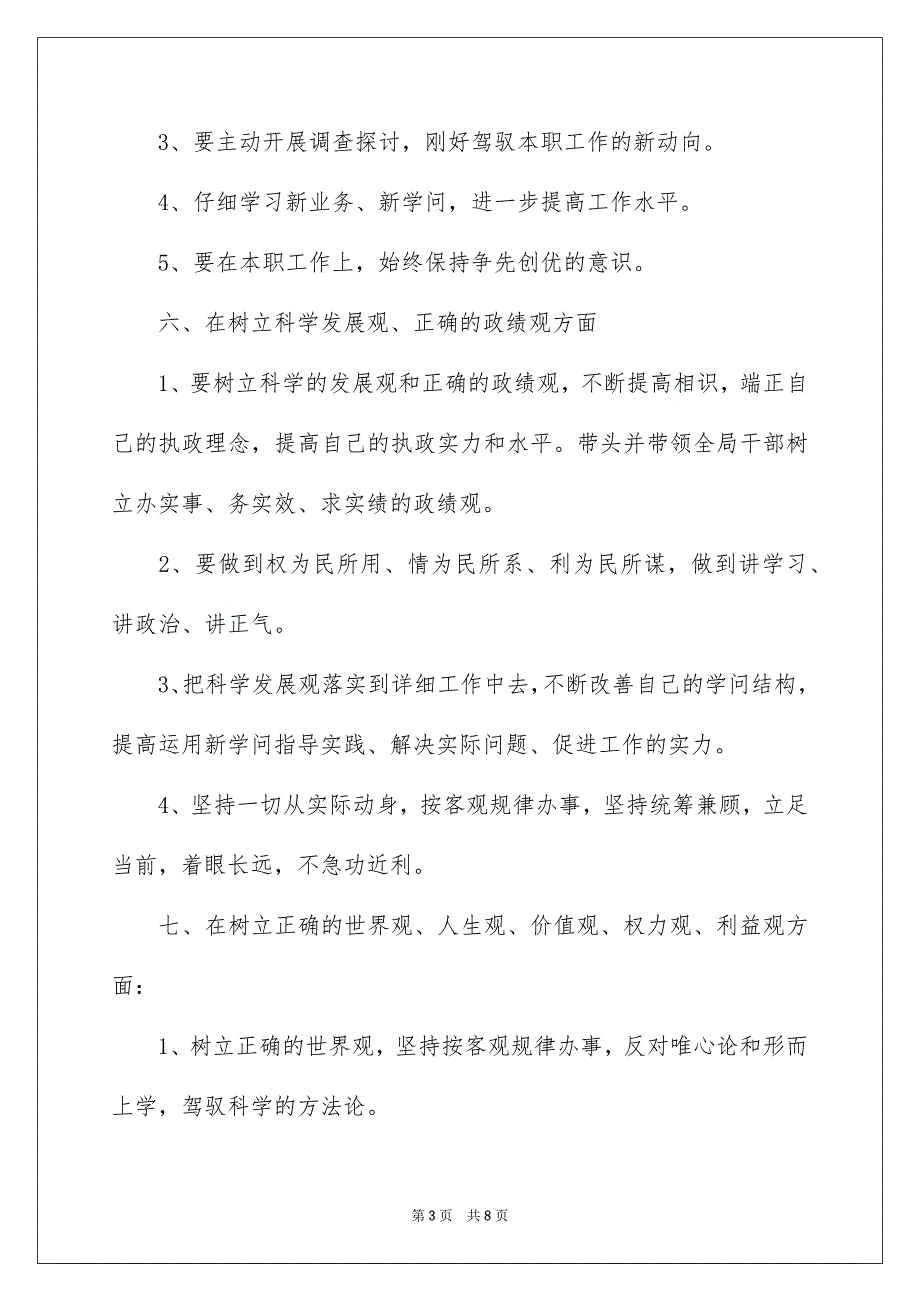 3、要主动开展调查探讨，刚好驾驭本职工作的新动向。
4、仔细学习新业务、新学问，进一步提高工作水平。
5、要在本职工作上，始终保持争先创优的意识。
六、在树立科学发展观、正确的政绩观方面
1、要树立科学的发展观和正确的政绩观，不断提高相识，端正自
己的执政理念，提高自己的执政实力和水平。带头并带领全局干部树
立办实事、务实效、求实绩的政绩观。
2、要做到权为民所用、情为民所系、利为民所谋，做到讲学习、
讲政治、讲正气。
3、把科学发展观落实到详细工作中去，不断改善自己的学问结构，
提高运用新学问指导实践、解决实际问题、促进工作的实力。
4、坚持一切从实际动身，按客观规律办事，坚持统筹兼顾，立足
当前，着眼长远，不急功近利。
七、在树立正确的世界观、人生观、价值观、权力观、利益观方
面：
1、树立正确的世界观，坚持按客观规律办事，反对唯心论和形而
上学，驾驭科学的方法论。
第 3 页 共 8 页